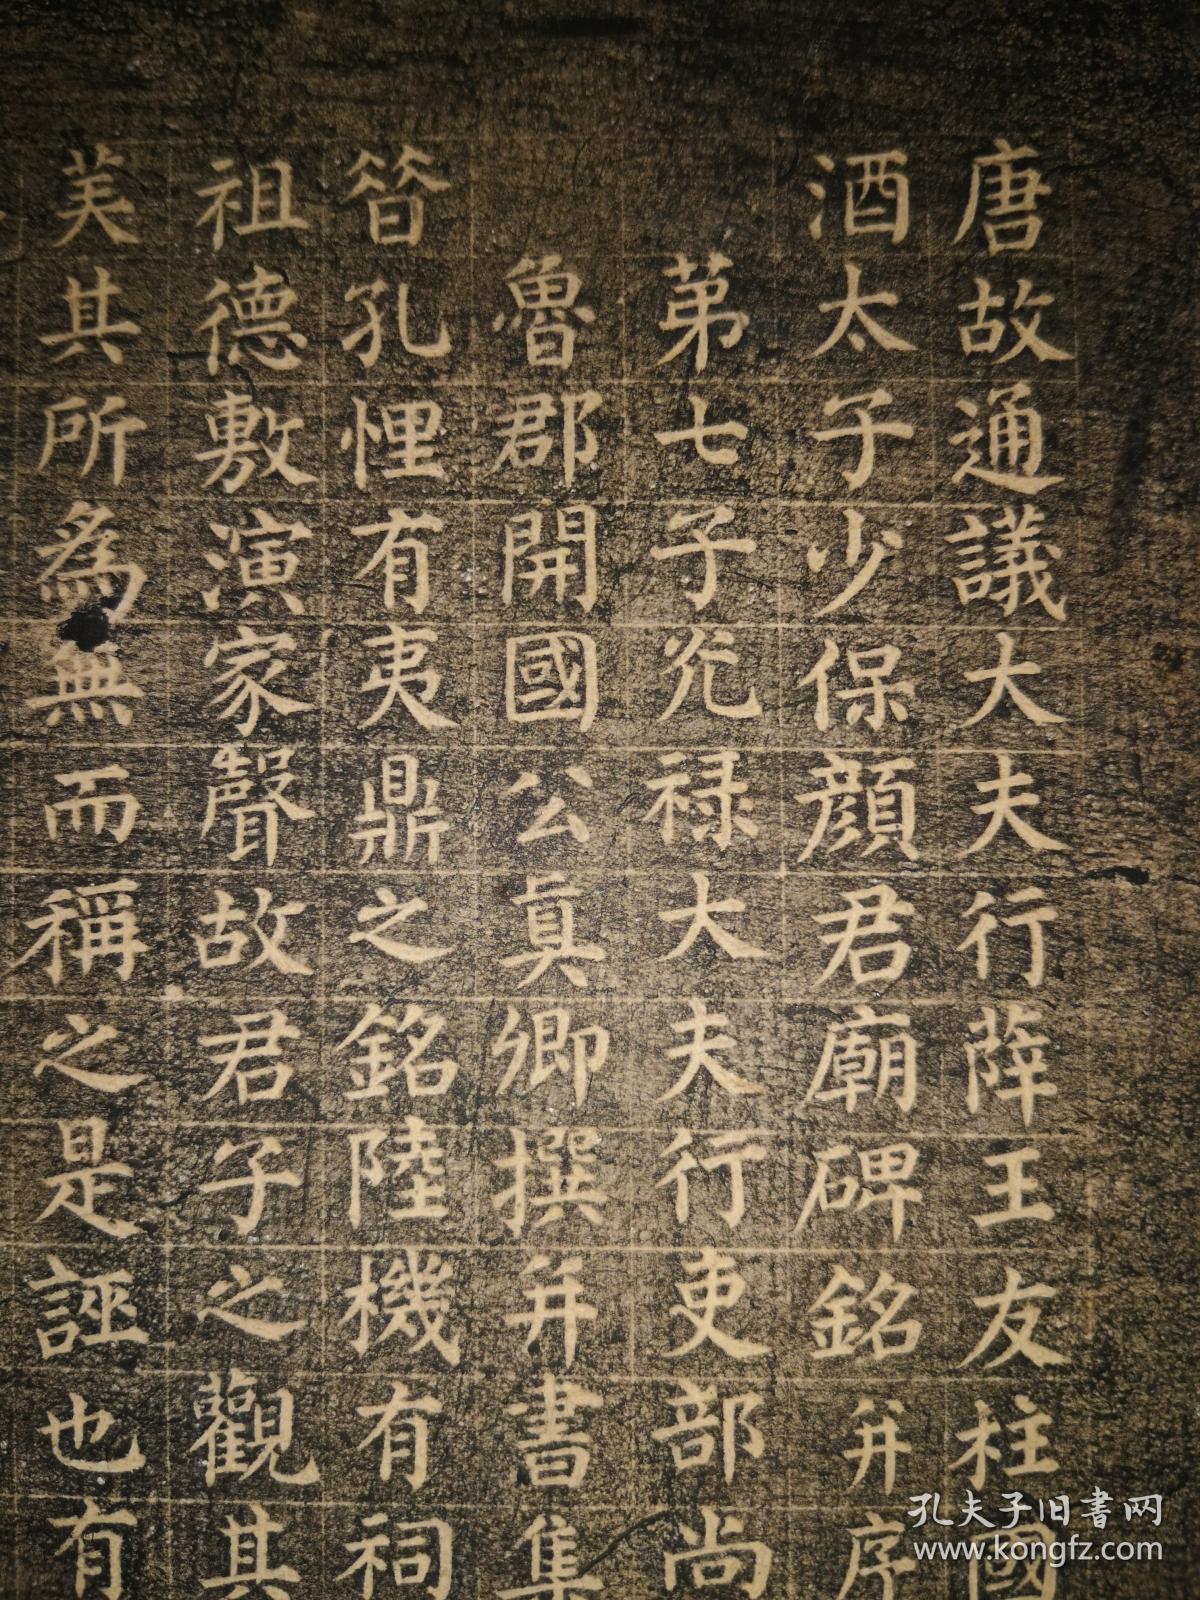 唐故通議大夫行薛王友柱國
酒太子少保顏君廟碑銘并序
第七子光祿大夫行吏部尚
魯郡開國公真卿撰并書集
昝孔悝有夷鼎之銘陸機有祠
祖德敷演家聲故君子之觀其
美其所為無而稱之是誣也有
孔夫子旧書网
www.kongfz.com